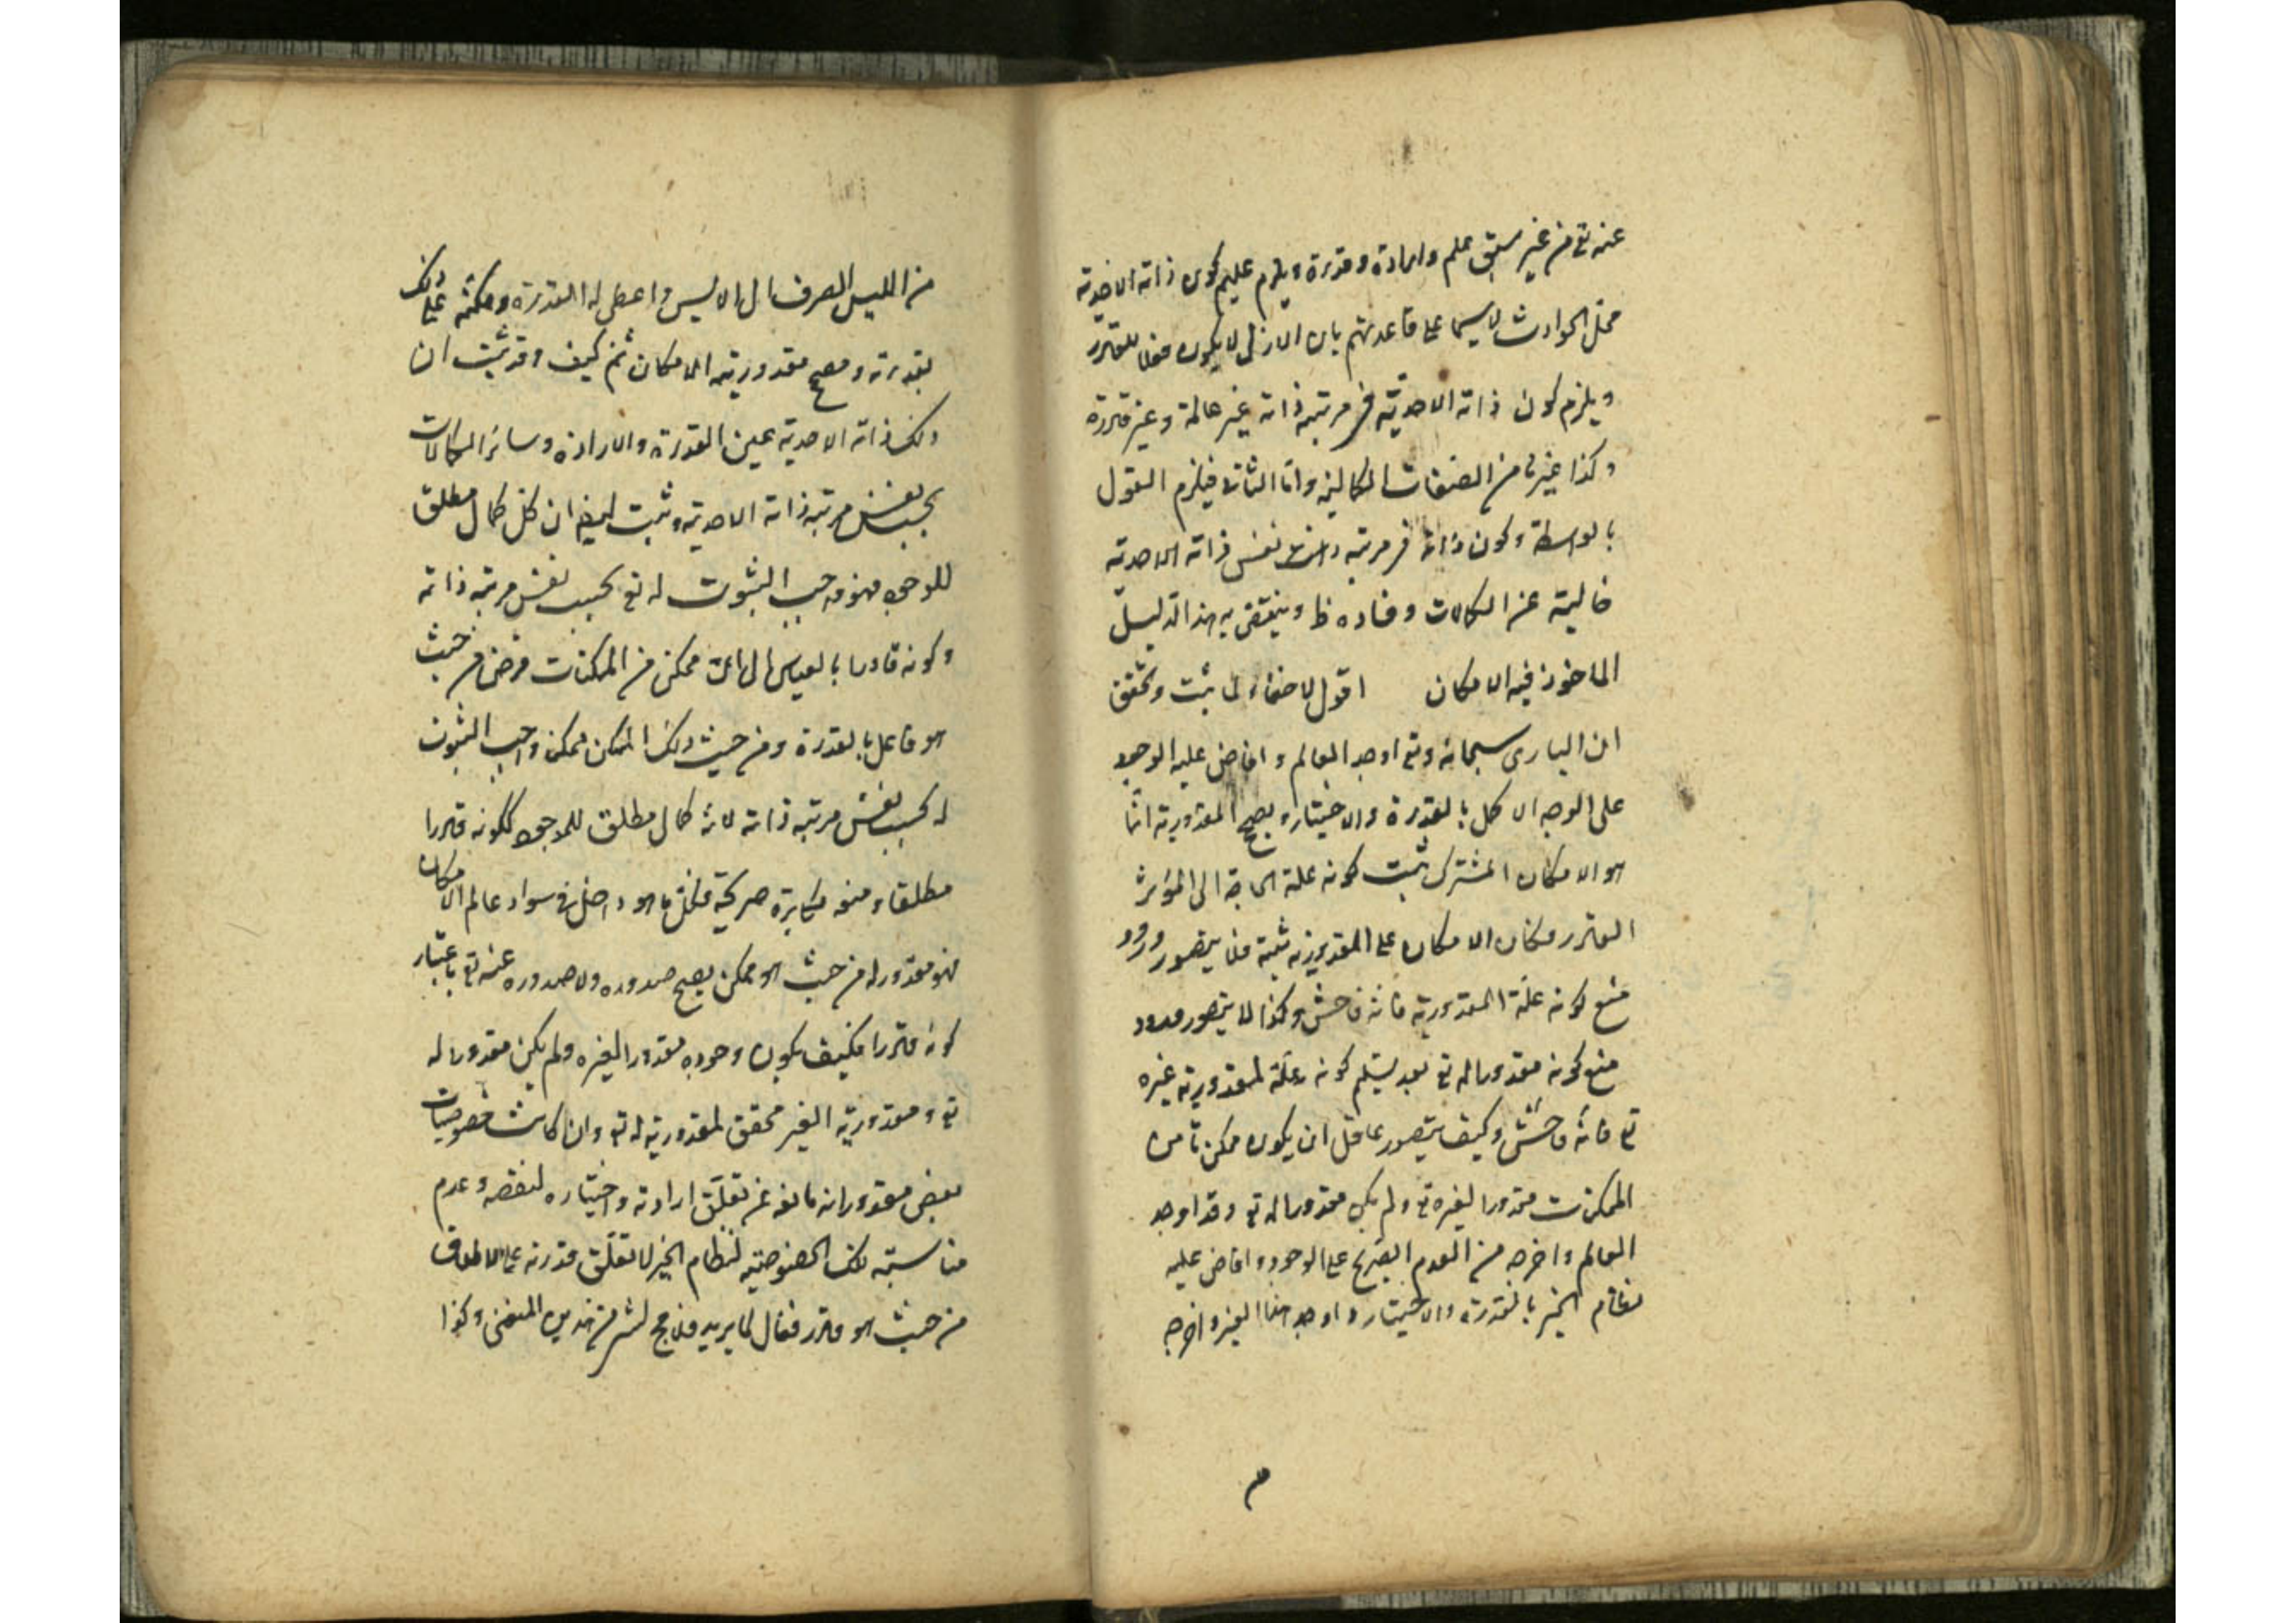 عنه تع من غير سبق علم وارادة وقدرة ويلزم عليهم كون ذاته الاحدية
محل الحوادث لا سيما على قاعدتهم بان الازلى لا يكون
ويلزم كون ذاته الاحدية فى مرتبة ذاته غير عالمة وغير قادرة
وكذا غيرها من الصفات الكمالية واما الثانى فيلزم القول
بالواسطة وكون ذاته فى مرتبة نفس ذاته الاحدية
خالية عن الكمالات وفساده ظ وينتقض به هذا الدليل
الماخوذ فيه الامكان اقول لا خفاء لما ثبت وتحقق
ان البارى سبحانه وتع اوجد العالم وافاض عليه الوجود
على الوجه الاكمل بالقدرة والاختيار ومصحح المقدورية انما
هو الامكان المشترك ثبت كونه علة الحاجة الى المؤثر
القادر فكان الامكان على التقديرين ثبته فلا يتصور ورود
منع كونه علة المقدورية فانه فاحش وكذا لا يتصور ورود
منع كونه مقدورا له تع بعد تسليم كونه علة لمقدورية غيره
تع فانه فاحش وكيف يتصور عاقل ان يكون ممكن ما من
الممكنات مقدورا لغيره تع ولم يكن مقدورا له تع وقد اوجد
العالم واخرجه من العدم الصريح على الوجود وافاض عليه
نظام الخير بالقدرة والاختيار واوجد هذا الغير واخرجه
م
من الليس الصرف الى الايس واعطى له القدرة ومكنه على ذلك
بقدرته ومصحح مقدوريته الامكان ثم كيف وقد ثبت ان
ذلك ذاته الاحدية عين القدرة والارادة وسائر الكمالات
بحسب نفس مرتبة ذاته الاحدية وثبت ايضا ان كل كمال مطلق
للوجود فهو واجب الثبوت له تع بحسب نفس مرتبة ذاته
وكونه قادرا بالقياس الى اى ممكن من الممكنات فرض من حيث
هو فاعل بالقدرة ومن حيث ذلك الممكن ممكن واجب الثبوت
له بحسب نفس مرتبة ذاته لانه كمال مطلق للموجود ككونه قادرا
مطلقا ومنعه مكابرة صريحة فكل ما هو داخل فى سواد عالم الامكان
فهو مقدور له من حيث هو ممكن يصح صدوره ولا صدوره عنه تع باعتبار
كونه قادرا فكيف يكون وجوده مقدورا لغيره ولم يكن مقدورا له
تع ومقدورية الغير محقق لمقدوريته له تع وان كانت خصوصيات
بعض مقدوراته مانعة عن تعلق ارادته واختياره لنقصه وعدم
مناسبة تلك الخصوصية لنظام الخير لا تعلق قدرته على الاطلاق
من حيث هو قادر فعال لما يريد فلا مح لشىء من هذين المنعين وكذا